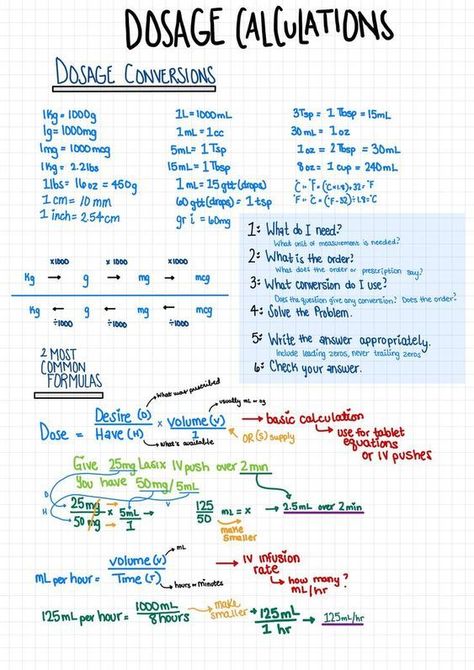 DOSAGE CALCULATIONS
DOSAGE CONVERSIONS
1Kg = 1000g
1g = 1000mg
1mg = 1000mcg
1Kg = 2.2lbs
1lbs = 16oz = 450g
1cm = 10mm
1 inch = 2.54cm
1L = 1000mL
1mL = 1cc
5mL = 1Tsp
15mL = 1Tbsp
1mL = 15gtt (drops)
60gtt (drops) = 1tsp
gr i = 60mg
3Tsp = 1Tbsp = 15mL
30mL = 1oz
1oz = 2Tbsp = 30mL
8oz = 1cup = 240mL
°C → °F = (°C×1.8)+32 = °F
°F → °C = (°F-32)÷1.8 = °C
x1000 x1000 x1000
Kg → g → mg → mcg
Kg ← g ← mg ← mcg
÷1000 ÷1000 ÷1000
1: What do I need?
What unit of measurement is needed?
2: What is the order?
What does the order or prescription say?
3: What conversion do I use?
Does the question give any conversion? Does the order?
4: Solve the Problem.
5: Write the answer appropriately.
Include leading zeros, never trailing zeros
6: Check your answer.
2 MOST
COMMON
FORMULAS
Dose = Desire (D) / Have (H) x Volume (V) / 1
what was prescribed
usually mL or
what's available
OR (S) supply
basic calculation
use for tablet
equations
or IV pushes
Give 25mg Lasix IV push over 2 min
You have 50mg/5mL
D H V
25mg / 50mg x 5mL / 1 → 125 / 50 mL = x → 2.5mL over 2min
make
smaller
mL per hour = Volume (V) / Time (T)
mL
hours or minutes
IV infusion
rate
how many?
mL/hr
125mL per hour = 1000mL / 8hours → make smaller → 125mL / 1 hr → 125mL/hr